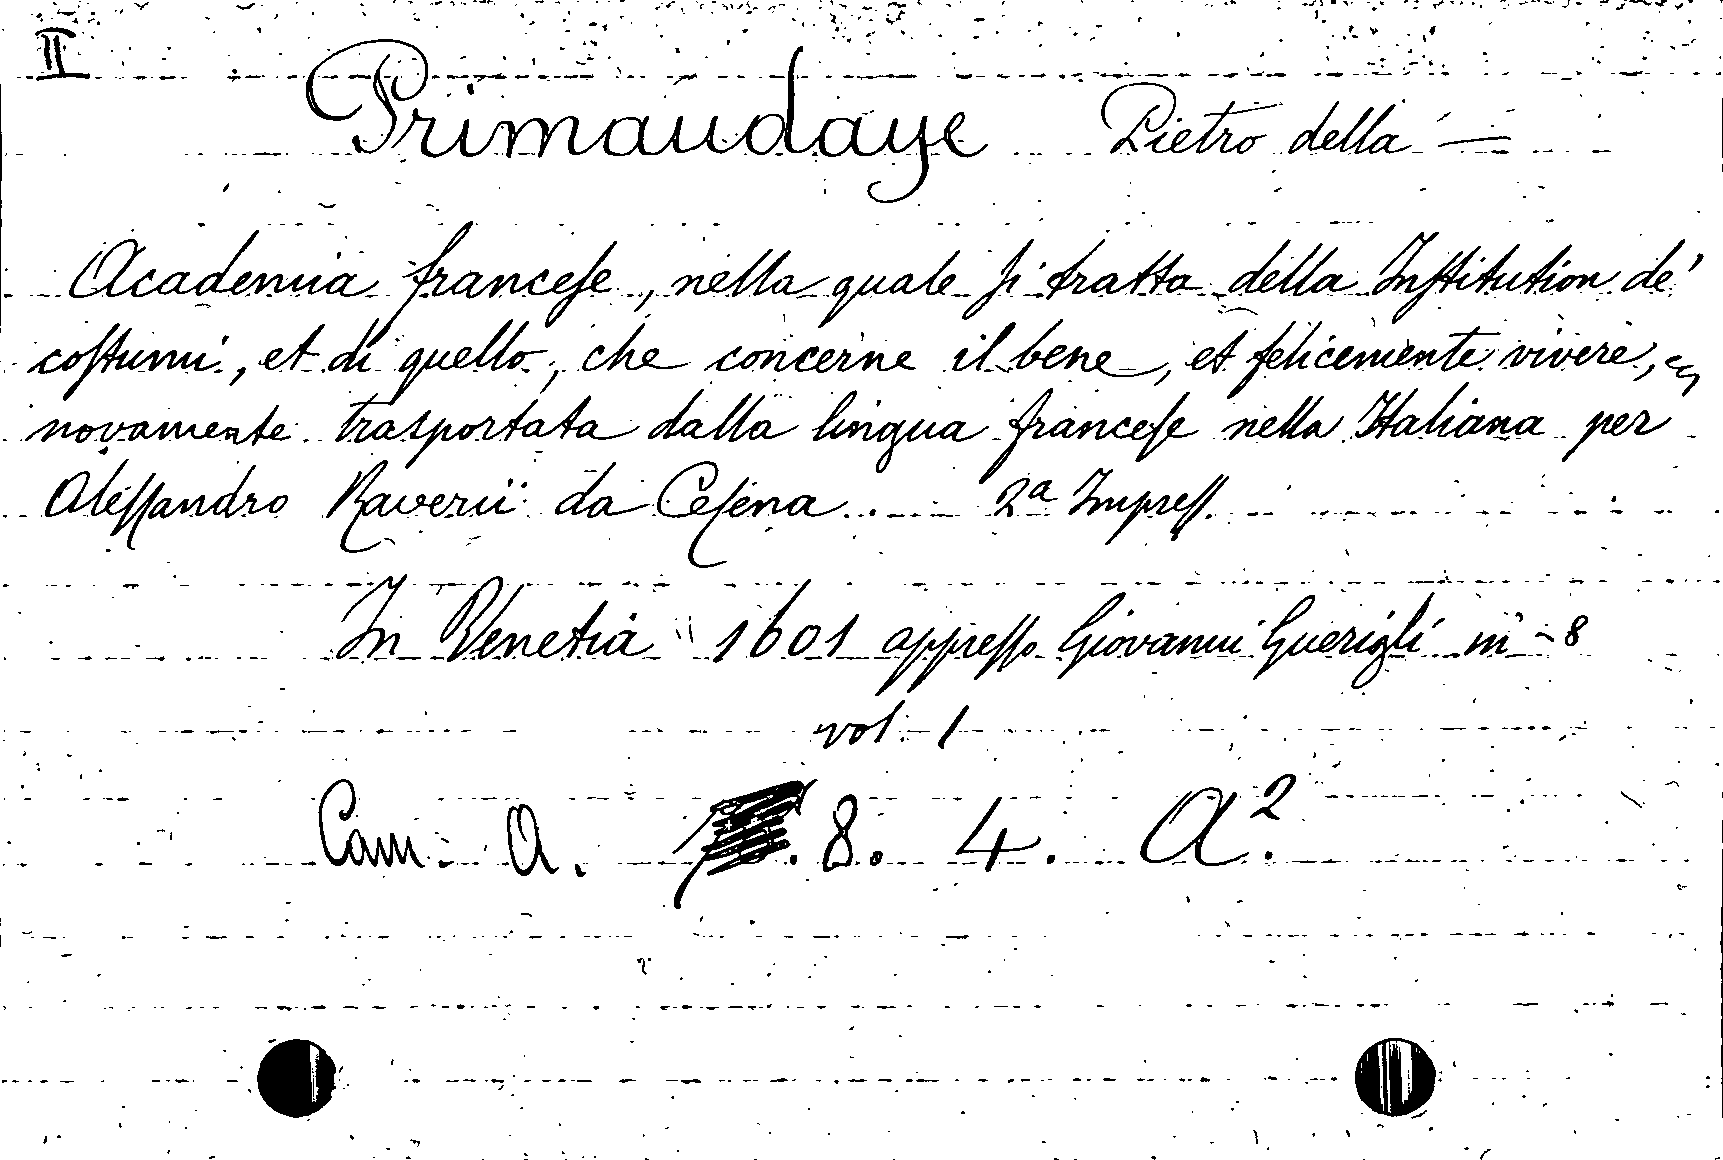 II
Primaudaye Pietro della —
Academia franceſe, nella quale ſi tratta della Inſtitution de'
coſtumi, et di quello, che concerne il bene, et felicemente vivere,
novamente trasportata dalla lingua franceſe nella Italiana per
Aleſſandro Raverii da Ceſena. 2ª Impreſſ.
In Venetia 1601 appreſſo Giovanni Guerigli in - 8
vol. 1
Cam. A. 8. 4. A².